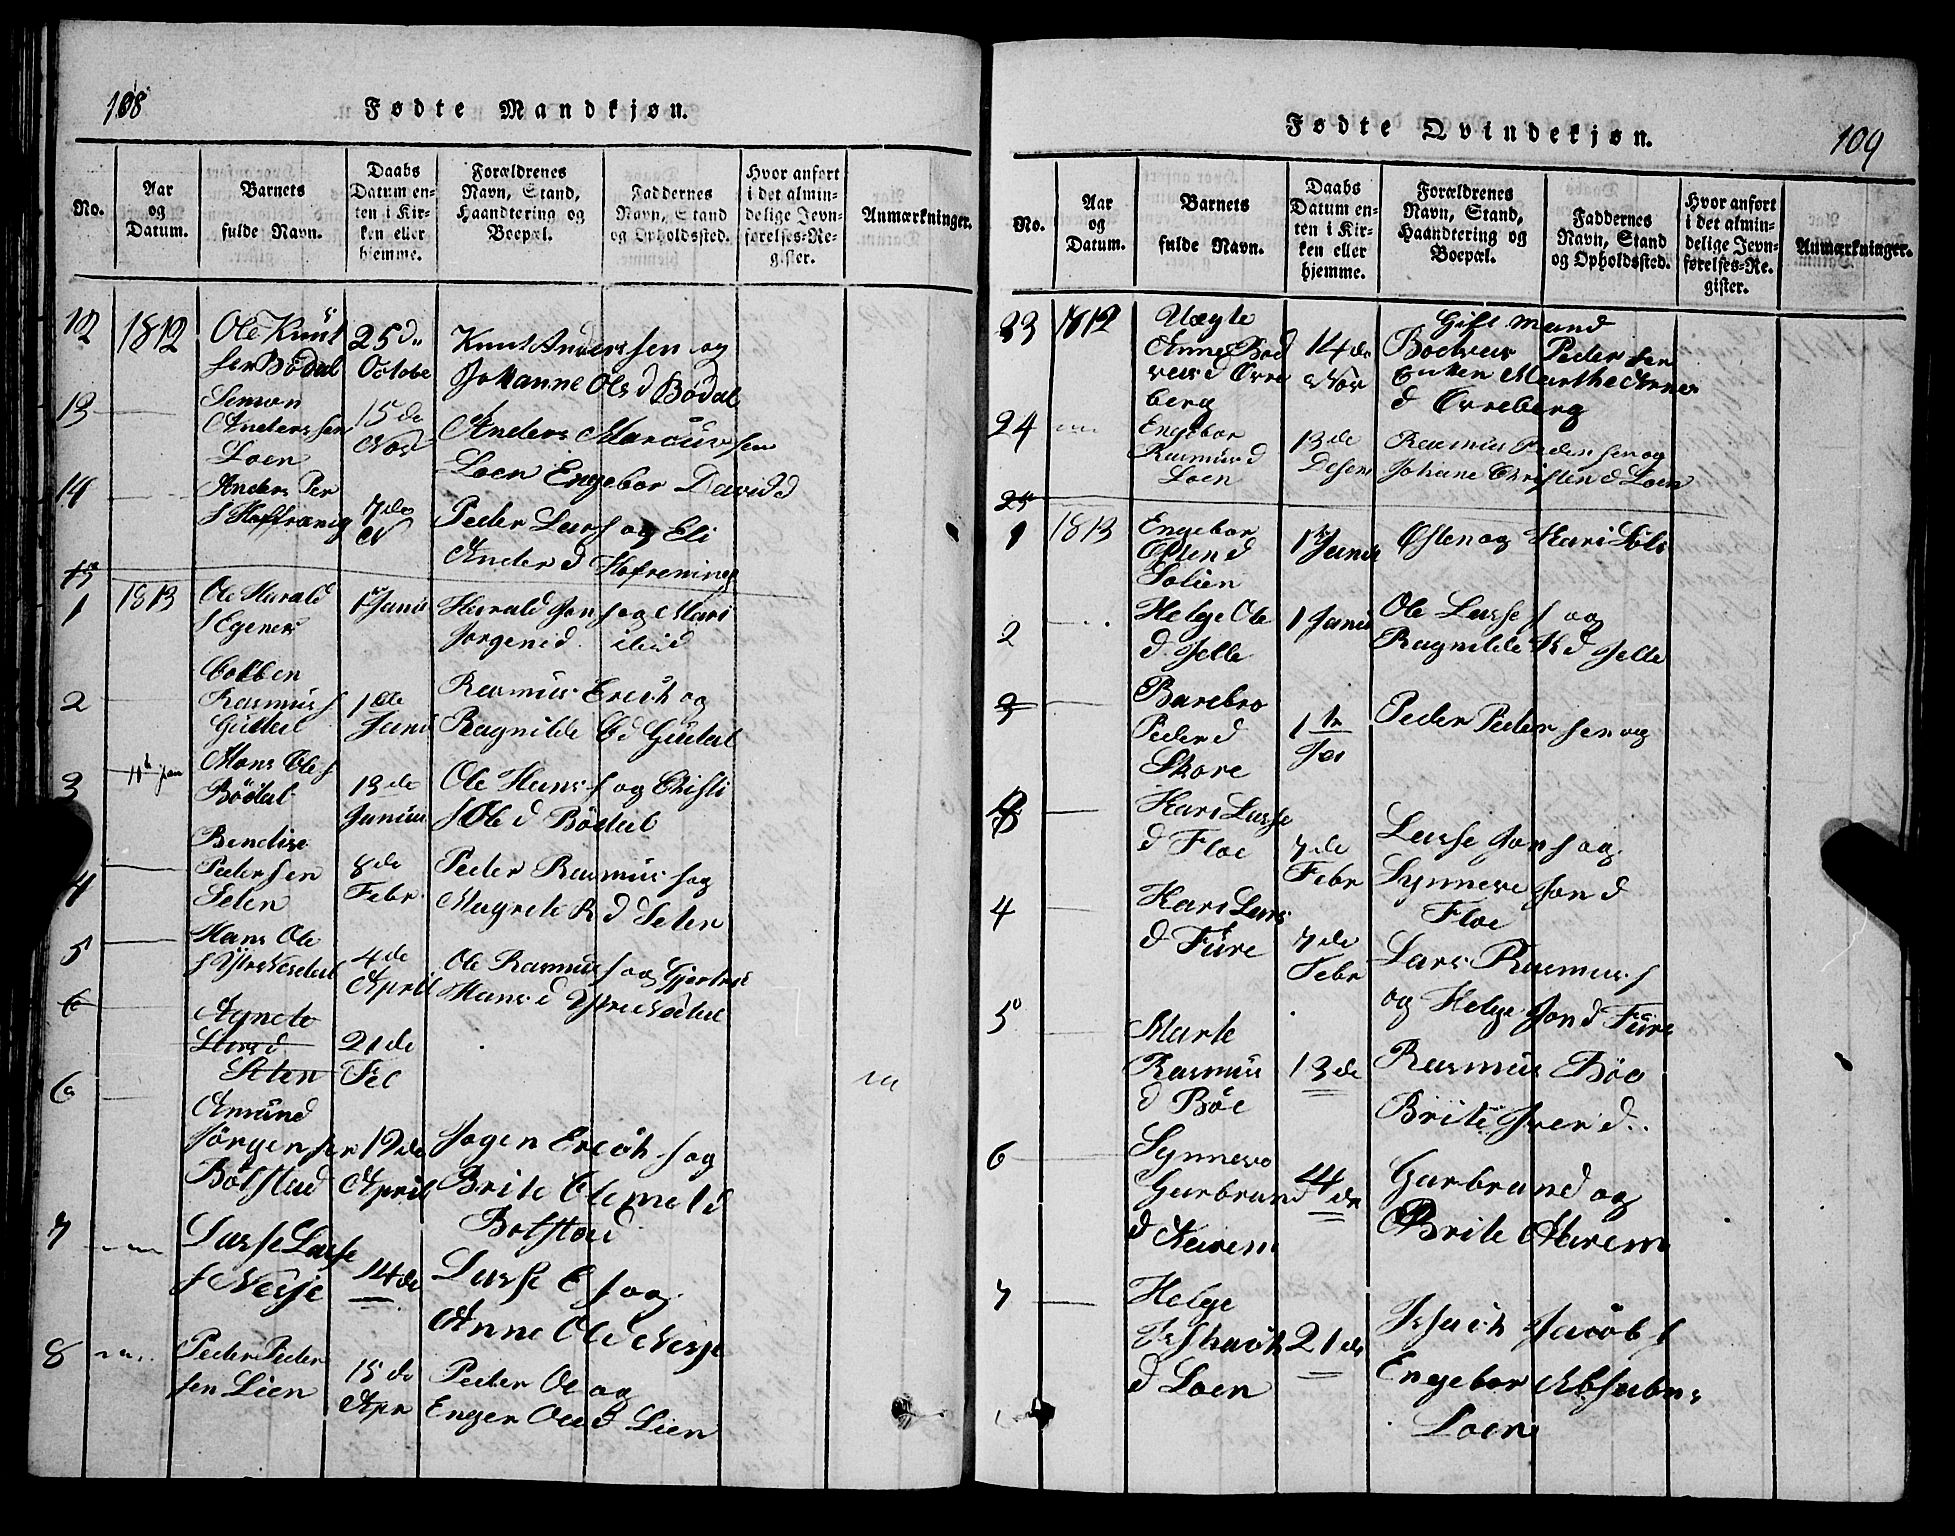 108
Fødte Mandkjøn.
No.
Aar
og
Datum.
Barnets
fulde Navn.
Daabs
Datum en-
ten i Kir-
ken eller
hjemme.
Forældrenes
Navn, Stand,
Haandtering og
Boepæl.
Faddernes
Navn, Stand
og Opholdssted.
Hvor anført
i det almin-
delige Jevn-
førelses-Re-
gister.
Anmærkninger.
12 1812 Ole Knut
sen Bødal
25de
Octobe
Knut Anderssen og
Johanne Ols d Bødal
13 Simon
Anderssen
Loen
15 de
Nov
Anders Marcussen
Loen Engebor David d
14 Anders Per
s Hoffrænig
7 de
Peder Lars s og Eli
Ander d Hofrening
15
1 1813 Ole Harald
s Egenes
1 Janu
Harald Jon s og Mari
Jørgen d ibid
2 Colben
Rasmus s
Guttal
1 de
Janu
Rasmus Erich og
Ragnilde d Guttal
3 11 Jan
Mons Ole s
Bødal
13 de
Januar
Ole Hans s og Christi
Ole d Bødal
4 Bendix
Pedersen
Seten
8 de
Febr.
Peder Rasmus s og
Magrete R d Seten
5 Hans Ole
s Ytre Nesdal
4 de
April
Ole Rasmus s og Gjertru
Hans d Ytre Nesdal
6 Agnete
Lars d
Seten
21 de
Fe
6 Amund
Jørgensen
Bolstad
12 de
April
Jøgen Erich s og
Brite Clemet d
Bolstad
7 Lasse Lasse
s Nesje
14 de
Lasse E s og
Anne Ole d Nesje
8 Peder Peder
sen Lien
15 de
Apr
Peder O og
Enger Ole d Lien
Fødte Qvindekjøn.
109
No.
Aar
og
Datum.
Barnets
fulde Navn.
Daabs
Datum en-
ten i Kir-
ken eller
hjemme.
Forældrenes
Navn, Stand,
Haandtering og
Boepæl.
Faddernes
Navn, Stand
og Opholdssted.
Hvor anført
i det almin-
delige Jevn-
førelses-Re-
gister.
Anmærkninger.
23 1812 Uægte
Anne Bod
veus d Øvre
berg
14 de
Nov
Gift Mand
Bodveus Pedersen
Enken Marthe Arne
d Øvreberg
24 Engebor
Rasmus d
Loen
13 de
Desem
Rasmus Pedersen og
Johane Christen d Loen
25
1 1813 Engebor
Østen d
Solien
1 Janu
Østen og Kari Soli
2 Helge Ole
d Jelle
1 Janu
Ole Lasse s og
Ragnilde K d Jelle
3 Barebro
Peder d
Skore
1
Peder Pedersen og
3 Kari Lasse
d Floe
7 de
Febr
Lasse Jon s og
Synneve Jon d
Floe
4 Kari Lars
d Fure
7 de
Febr
Lars Rasmus s
og Helge Jon d Fure
5 Marte
Rasmus
d Böe
13 de
Rasmus Böe
Brite Iver d
6 Synneve
Garbrand
d Aarem
14 de
Garbrand og
Brite Aarem
7 Helge
d Loen
21 de
Isach Jacob s
Engebor Absalons
Loen